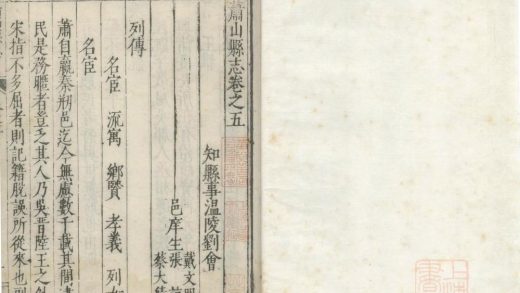 蕭山縣志卷之五
知縣事温陵劉會
邑庠生
戴文明
張
蔡大績
列傳
名宦 流寓 鄉賢 孝義 列女
名宦
蕭自嬴秦剏邑迄今無慮數千載其間
民是務職者登之其人乃吳晉陸王之外
宋指不多屈者則記籍脫誤所從來也